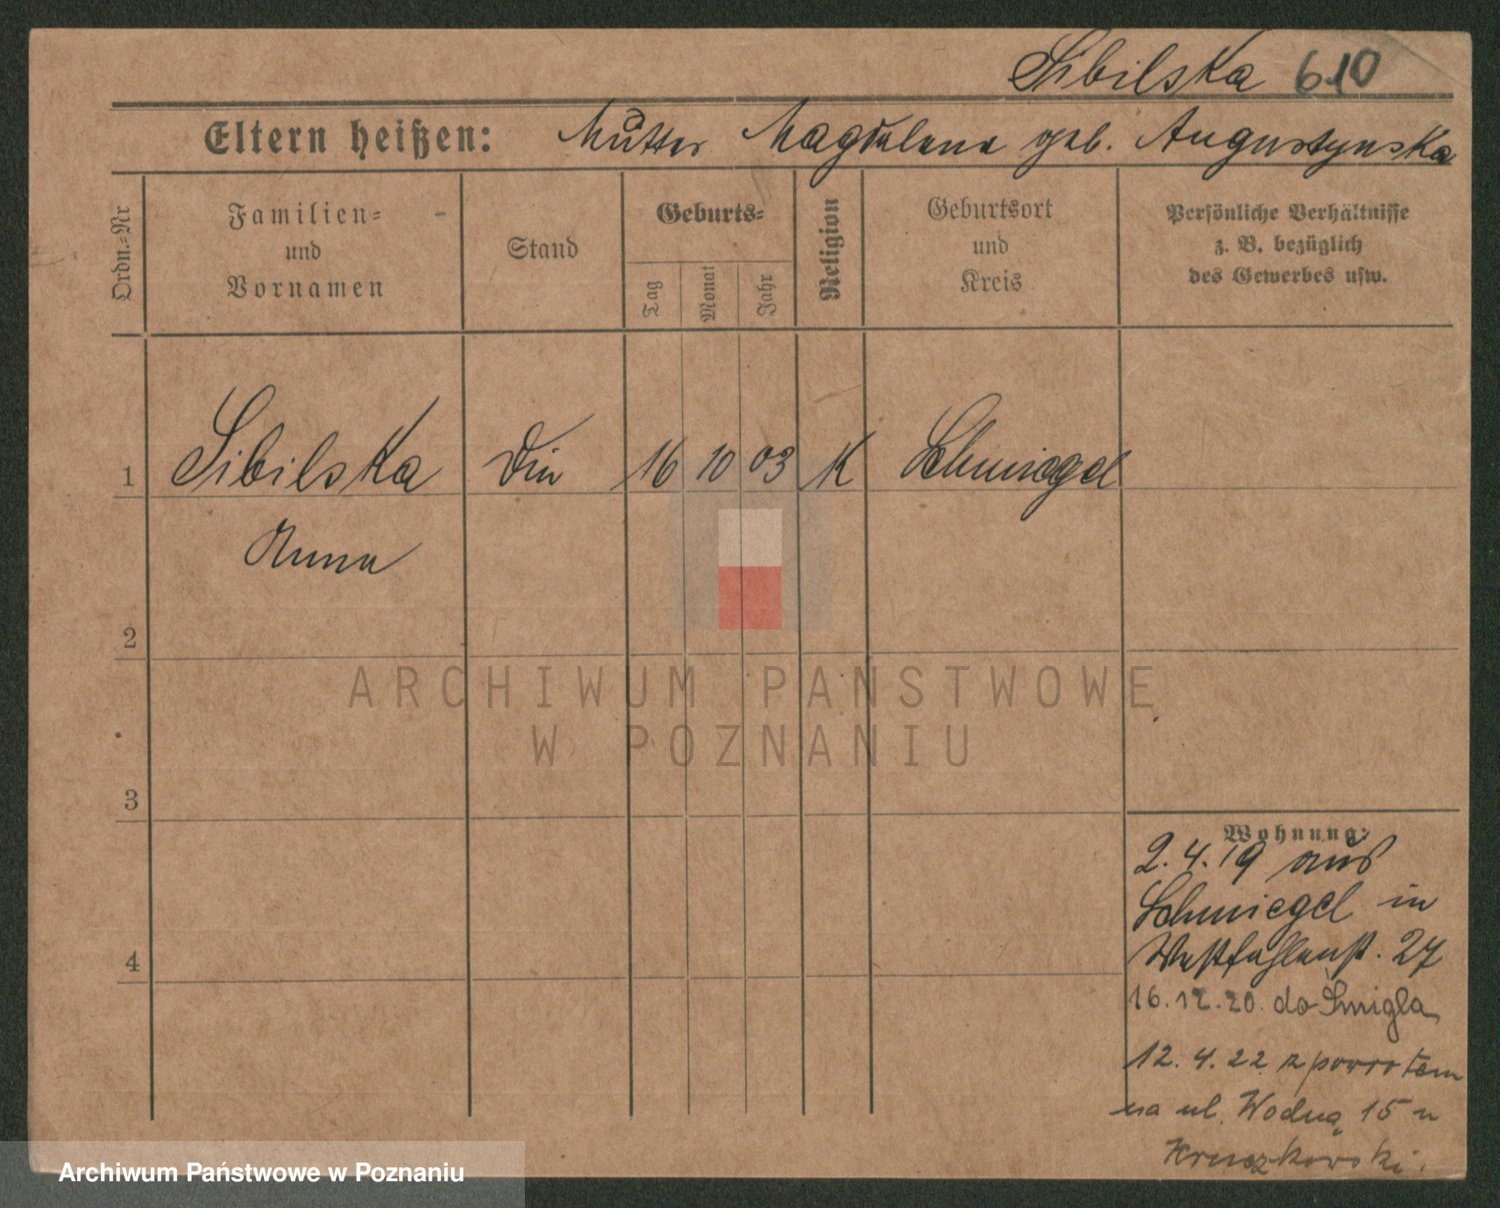 Sibilska 610
Eltern heißen: Mutter Magdalena geb. Augustynska
Ordn.-Nr
Familien-
und
Vornamen
Stand
Geburts-
Tag
Monat
Jahr
Religion
Geburtsort
und
Kreis
Persönliche Verhältnisse
z. B. bezüglich
des Gewerbes usw.
1 Sibilska Din 16 10 03 K Schmiegel
Anna
2
3
4
Wohnung:
2.4.19 aus
Schmiegel in
Westfahlenst. 27
16.12.20. do Śmigla
12.4.22 z powrotem
na ul. Wodną 15 u
Kruczkowski.
ARCHIWUM PAŃSTWOWE
W POZNANIU
Archiwum Państwowe w Poznaniu